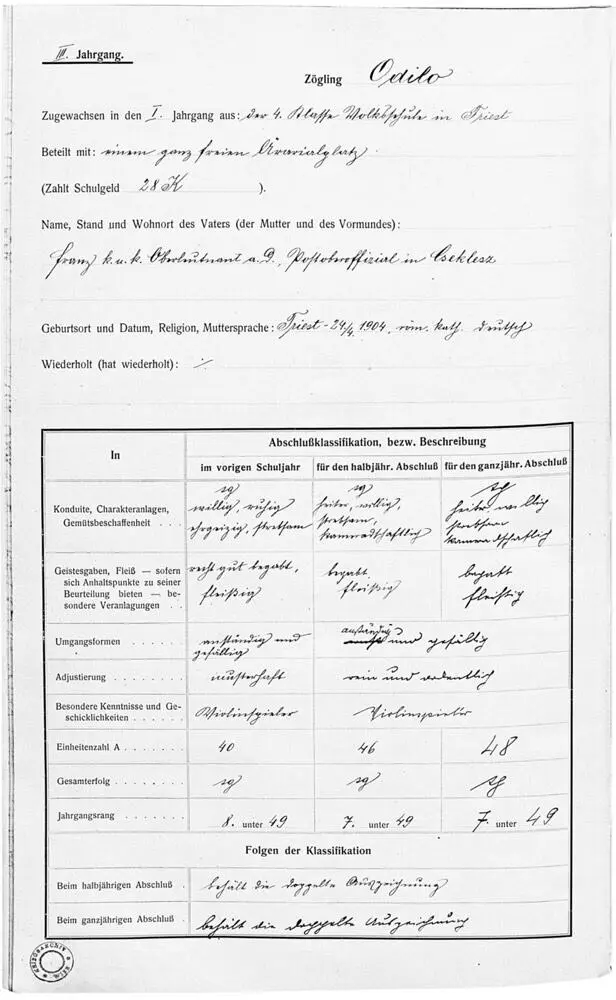 III. Jahrgang.
Zögling Odilo
Zugewachsen in den I. Jahrgang aus: der 4. Klasse Volksschule in Triest
Beteilt mit: einem ganz freien Ärarialplatz.
(Zahlt Schulgeld 28 K ).
Name, Stand und Wohnort des Vaters (der Mutter und des Vormundes):
Franz k. u. k. Oberleutnant a. D., Postoberoffizial in Cseklesz
Geburtsort und Datum, Religion, Muttersprache: Triest - 24/4. 1904, röm. kath. deutsch
Wiederholt (hat wiederholt): ./.
In
Abschlußklassifikation, bezw. Beschreibung
im vorigen Schuljahr für den halbjähr. Abschluß für den ganzjähr. Abschluß
Konduite, Charakteranlagen, Gemütsbeschaffenheit . . .
sg
willig, ruhig
ehrgeizig, strebsam
sg
heiter, willig,
strebsam,
kameradschaftlich
sg
heiter willig
strebsam
kameradschaftlich
Geistesgaben, Fleiß — sofern
sich Anhaltspunkte zu seiner
Beurteilung bieten — be-
sondere Veranlagungen . .
recht gut begabt,
fleißig
begabt
fleißig
begabt
fleißig
Umgangsformen . . . . .
anständig und
gefällig
anständig
und gefällig
Adjustierung . . . . . . . .
musterhaft
rein und ordentlich
Besondere Kenntnisse und Ge-
schicklichkeiten . . . . . .
Violinspieler
Violinspieler
Einheitenzahl A . . . . . . . 40 46 48
Gesamterfolg . . . . . . . . sg sg sg
Jahrgangsrang . . . . . . . 8. unter 49 7. unter 49 7. unter 49
Folgen der Klassifikation
Beim halbjährigen Abschluß . behält die doppelte Auszeichnung
Beim ganzjährigen Abschluß . behält die doppelte Auszeichnung